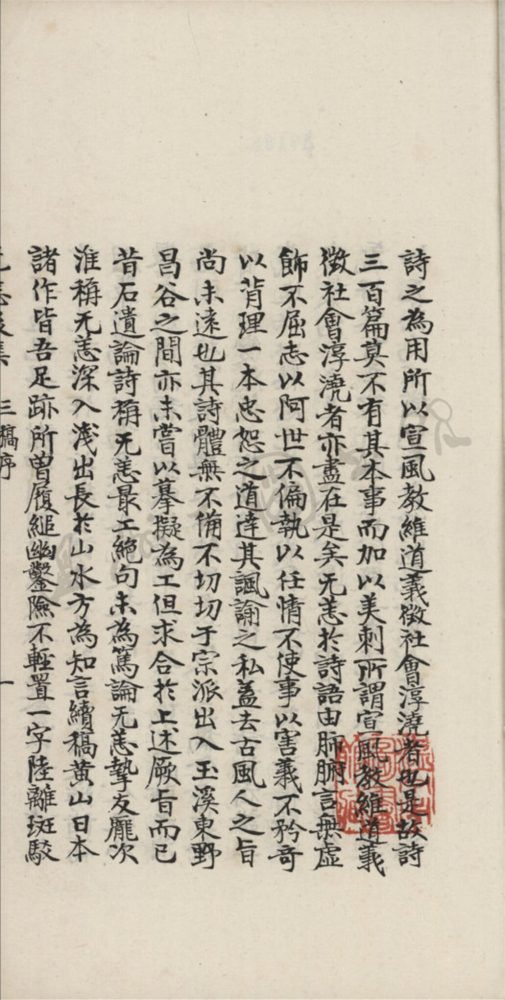 詩之為用所以宣風教維道義徵社會淳澆者也是故詩
三百篇莫不有其本事而加以美刺所謂宣風教維道義
徵社會淳澆者亦盡在是矣无恙於詩語由肺腑言無虛
飾不屈志以阿世不偏執以任情不使事以害義不矜奇
以背理一本忠恕之道達其諷諭之私蓋去古風人之旨
尚未遠也其詩體無不備不切切于宗派出入玉溪東野
昌谷之間亦未嘗以摹擬為工但求合於上述厥旨而已
昔石遺論詩稱无恙最工絕句未為篤論无恙摯友龐次
淮稱无恙深入淺出長於山水方為知言續稿黃山日本
諸作皆吾足跡所曾履縋幽鑿險不輕置一字陸離斑駁
三稿序
一